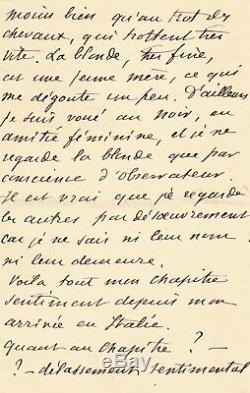 moins bien qu'au trot des
chevaux, qui trottent très
vite. La blonde, très fine,
est une jeune mère, ce qui
me dégoute un peu. D'ailleurs
je suis voué au noir, en
amitié féminine, et je ne
regarde la blonde que par
conscience d'observateur.
Il est vrai que je regarde
les autres par désœuvrement
car je ne sais ni leur nom
ni leur demeure.
Voila tout mon chapitre
sentiment depuis mon
arrivée en Italie.
quant au chapitre ?—
?— délassement sentimental